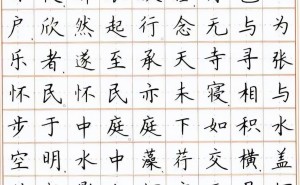 户欣然起行念无与为
乐者遂至承天寺寻张
怀民怀民亦未寝相与
步于中庭庭下如积水
空明水中藻荇交横盖